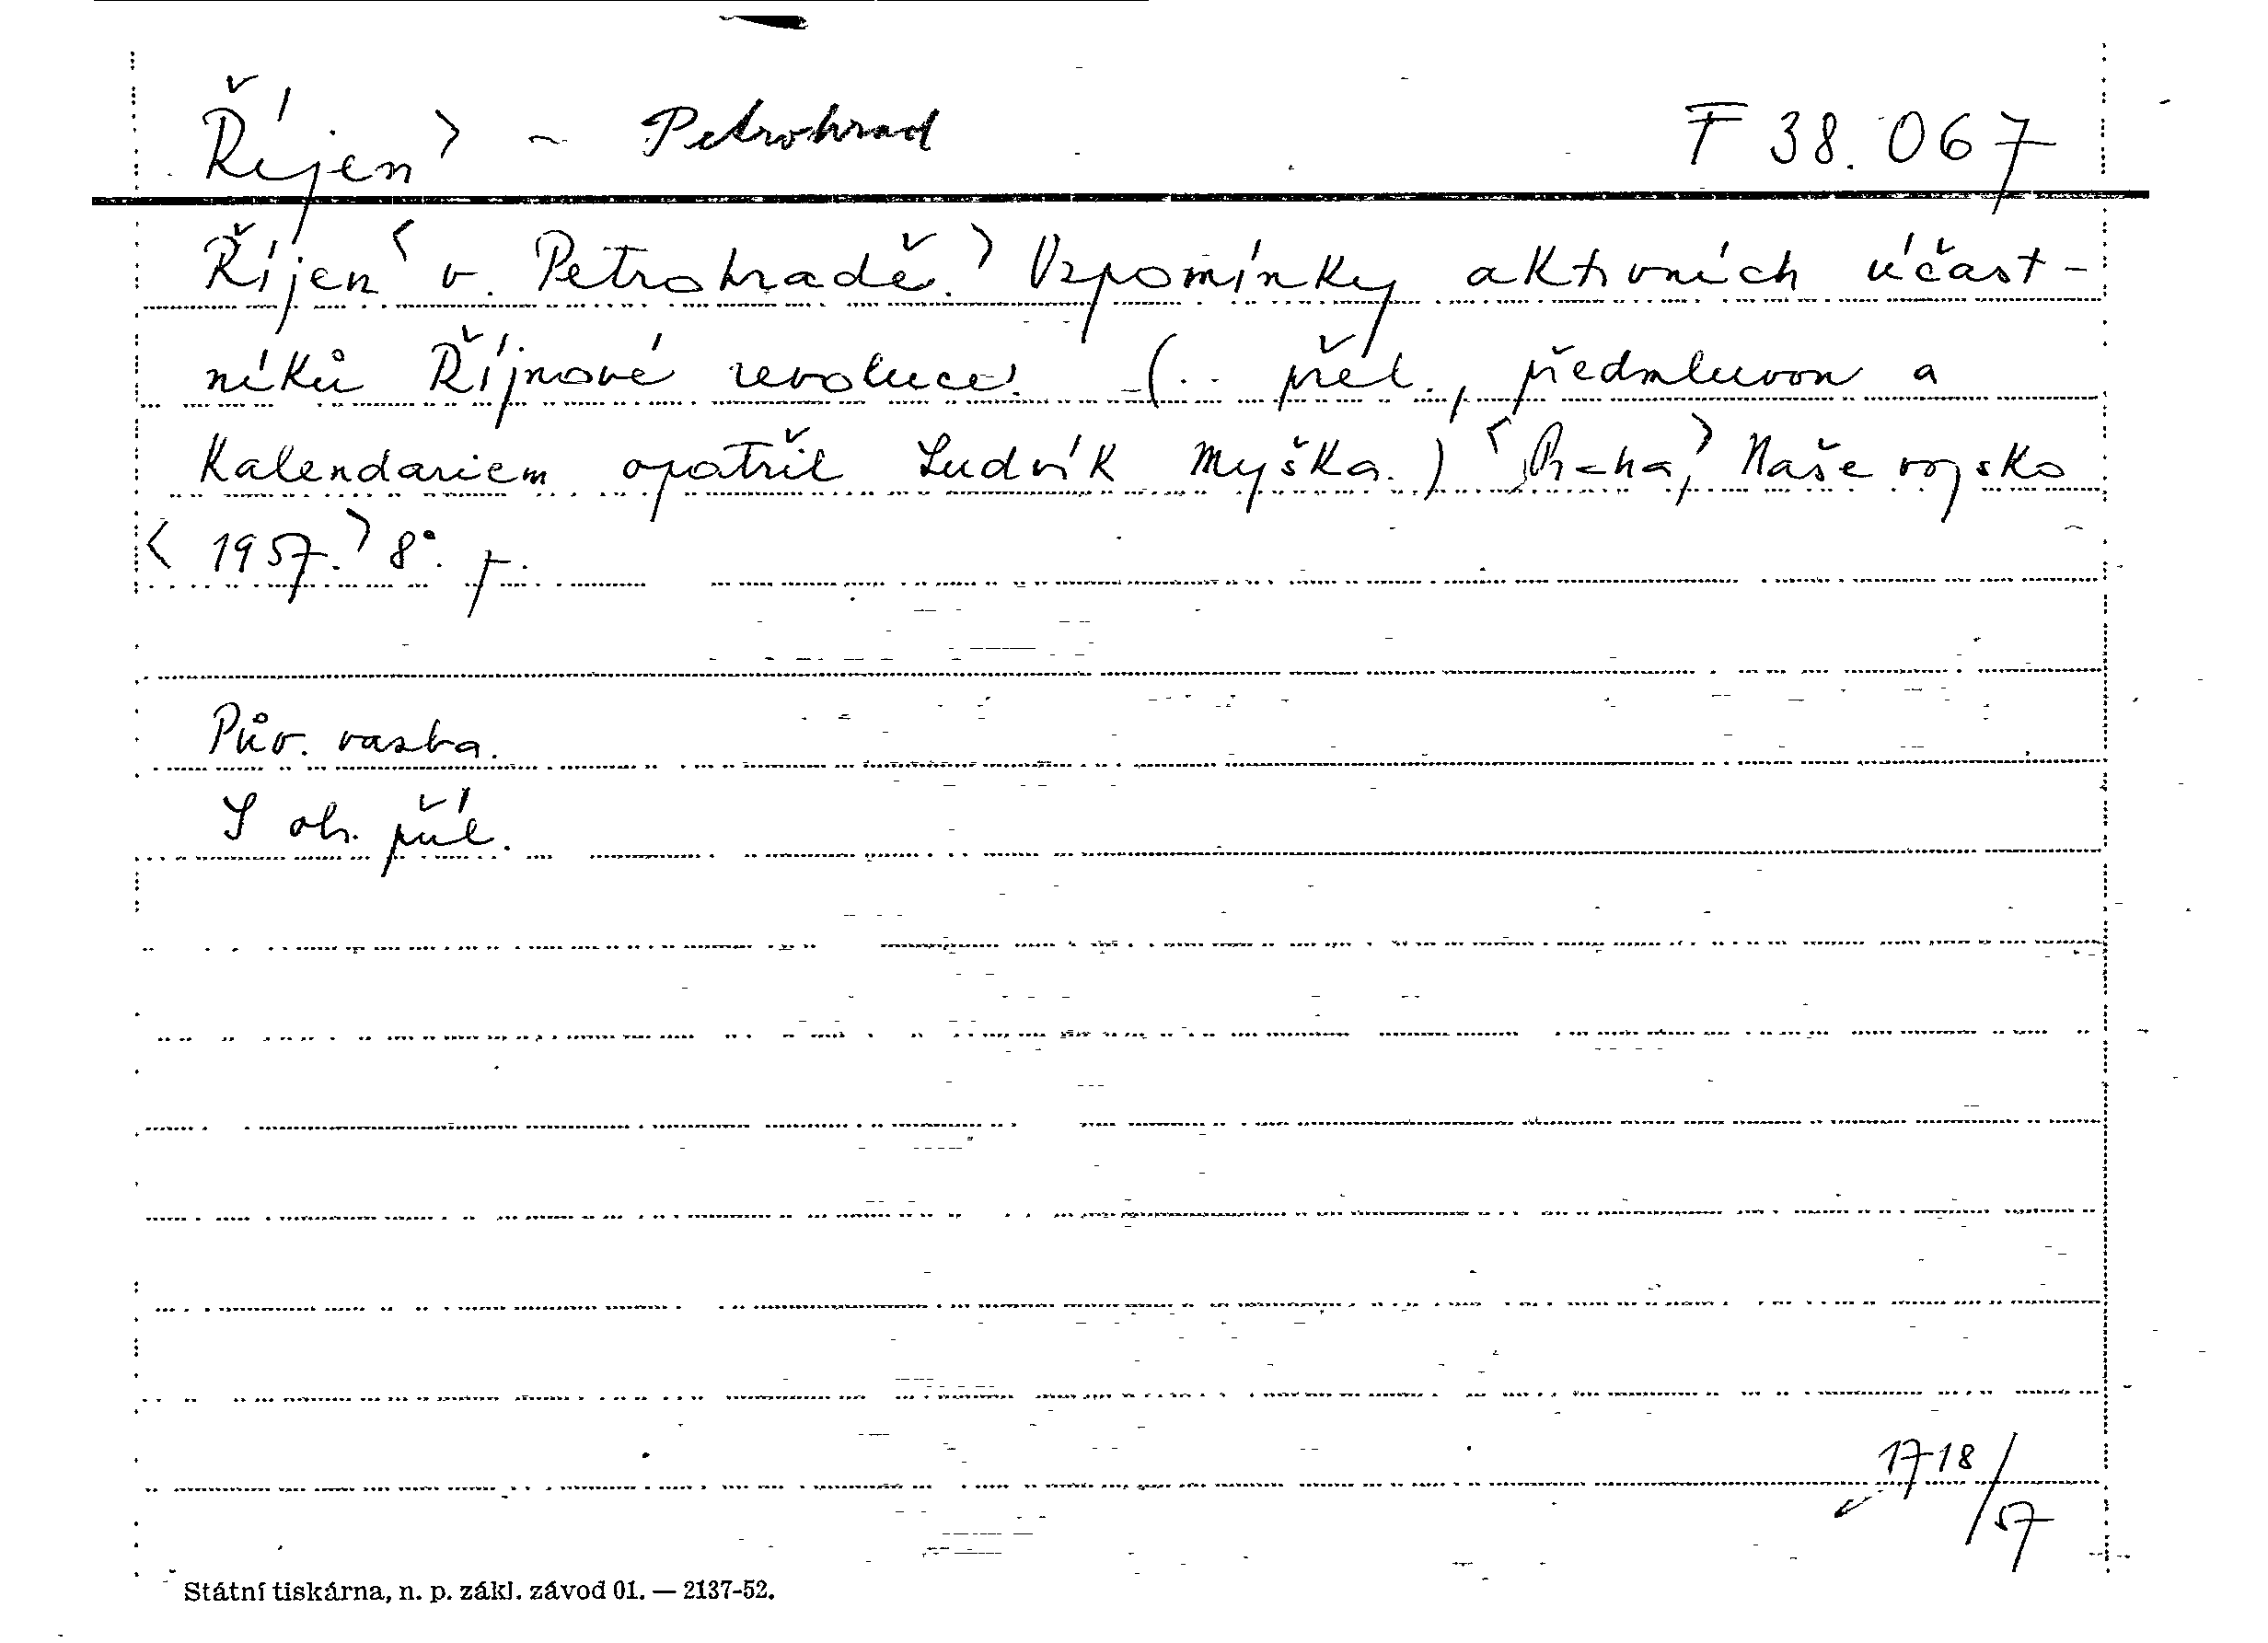 Říjen> - Petrohrad F 38.067
Říjen < v Petrohradě.> Vzpomínky aktivních účast-
níků Říjnové revoluce. (.. přel., předmluvou a
kalendariem opatřil Ludvík Myška.) <Praha,> Naše vojsko
< 1957.> 8°.
Pův. vazba.
S obr. příl.
1718/57
Státní tiskárna, n. p. zákl. závod 01. — 2137-52.